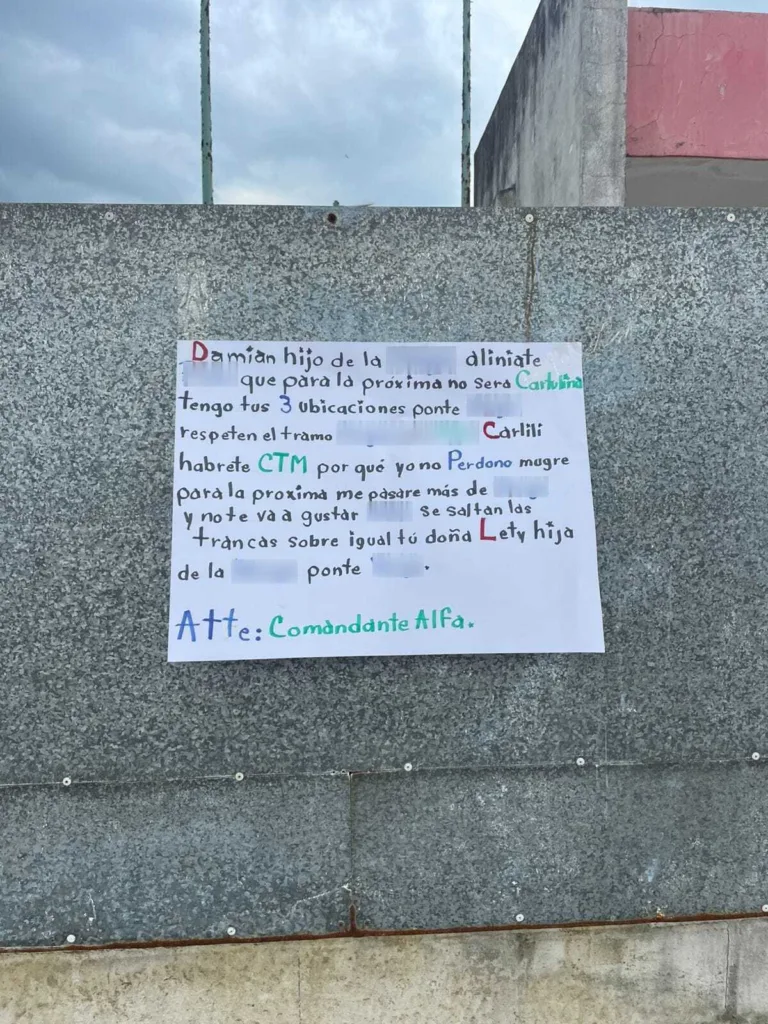 Damian hijo de la aliniate
que para la próxima no será Cartulina
tengo tus 3 ubicaciones ponte
respeten el tramo Carlili
habrete CTM por qué yo no Perdono mugre
para la proxima me pasare más de
y no te va a gustar se saltan las
trancas sobre igual tú doña Lety hija
de la ponte .
Atte: Comandante Alfa.